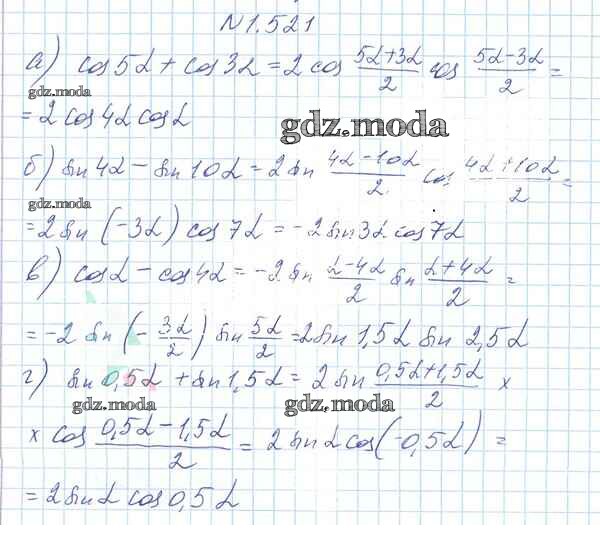 N 1.521
а) cos5α + cos3α = 2 cos (5α+3α)/2 cos (5α-3α)/2 =
gdz.moda
= 2 cos4α cosα
gdz.moda
б) sin 4α - sin 10α = 2 sin (4α-10α)/2 cos (4α+10α)/2 =
gdz.moda
= 2 sin (-3α) cos 7α = - 2 sin3α cos7α
в) cosα - cos4α = -2 sin (α-4α)/2 sin (α+4α)/2 =
= -2 sin (- 3α/2) sin 5α/2 = 2 sin 1,5α sin 2,5α
г) sin 0,5α + sin 1,5α = 2 sin (0,5α+1,5α)/2 ×
gdz.moda gdz.moda
× cos (0,5α-1,5α)/2 = 2 sin α cos(-0,5α) =
= 2 sin α cos 0,5α